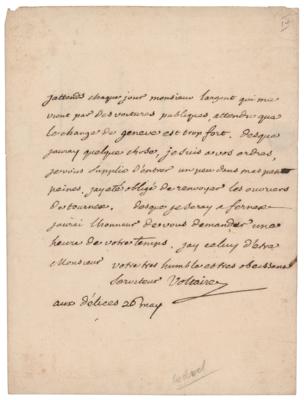 jattends chaque jour monsieur largent qui me
vient par des voitures publiques, attendu que
le change de geneve est trop fort. desque
jauray quelque chose, je suis a vos ordres,
je vous supplie d'entrer un peu dans mes
peines, jay eté obligé de renvoyer les ouvriers
de tournex. desque je seray a fernex
jaurai lhonneur de vous demander une
heure de votre temps. jay l'honneur d'etre
Monsieur votre tres humble et tres obeissant
serviteur Voltaire
aux délices 26 may